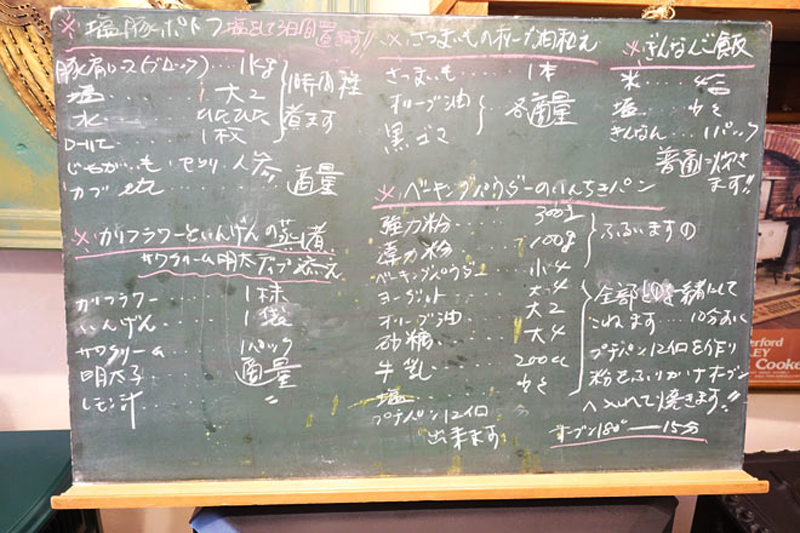 ※ 塩豚ポトフ 塩をして3日間置きます!!
豚肩ロース(ブロック)‥‥1kg
塩‥‥大2
水‥‥ひたひた
ローリエ‥‥1枚
1時間程
煮ます
じゃがいも セロリ 人参
カブ etc‥‥適量
※ カリフラワーといんげんの蒸し煮
サワクリーム明太ディップ添え
カリフラワー‥‥1株
いんげん‥‥1袋
サワクリーム‥‥1パック
明太子‥‥適量
レモン汁‥‥〃
※ さつまいものオリーブ油和え
さつまいも‥‥1本
オリーブ油
黒ゴマ
各適量
※ ぎんなんご飯
米‥‥4合
塩‥‥少々
ぎんなん‥‥1パック
普通に炊き
ます!!
※ ベーキングパウダーのいんちきパン
強力粉‥‥300g
薄力粉‥‥100g
ベーキングパウダー‥‥小4
ヨーグルト‥‥大4
オリーブ油‥‥大2
砂糖‥‥大4
牛乳‥‥200cc
塩‥‥少々
プチパン12個
出来ます
ふるいます
全部を一緒にして
こねます‥‥10分おく
プチパン12個を作り
粉をふりかけオーブン
へ入れて焼きます!!
オーブン180°―15分